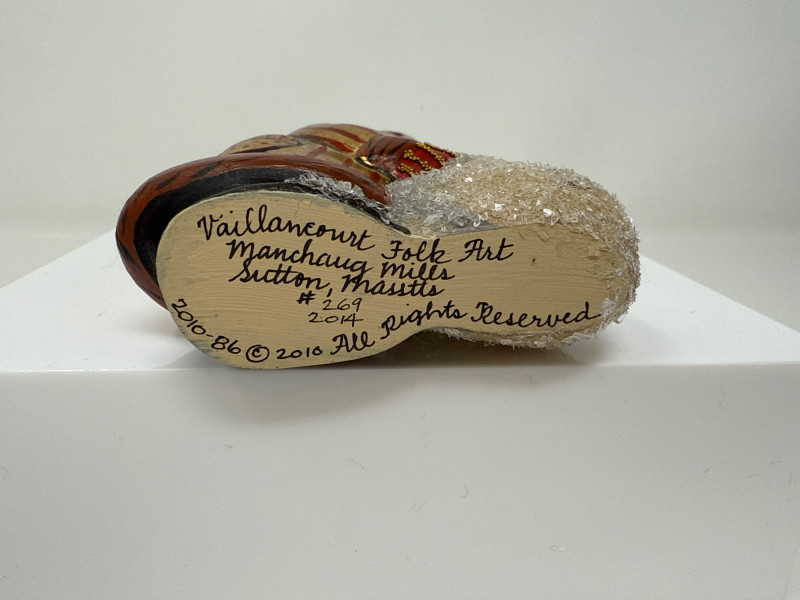 Vaillancourt Folk Art
Manchaug Mills
Sutton, Masstts
# 269
2014
2010-86 © 2010 All Rights Reserved